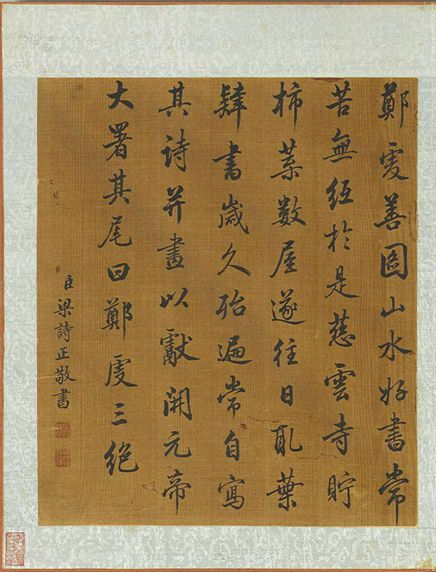 鄭虔善圖山水好書常
苦無紙於是慈雲寺貯
柿葉數屋遂往日取葉
肄書歲久殆遍常自寫
其詩并畫以獻開元帝
大署其尾曰鄭虔三絶
臣梁詩正敬書